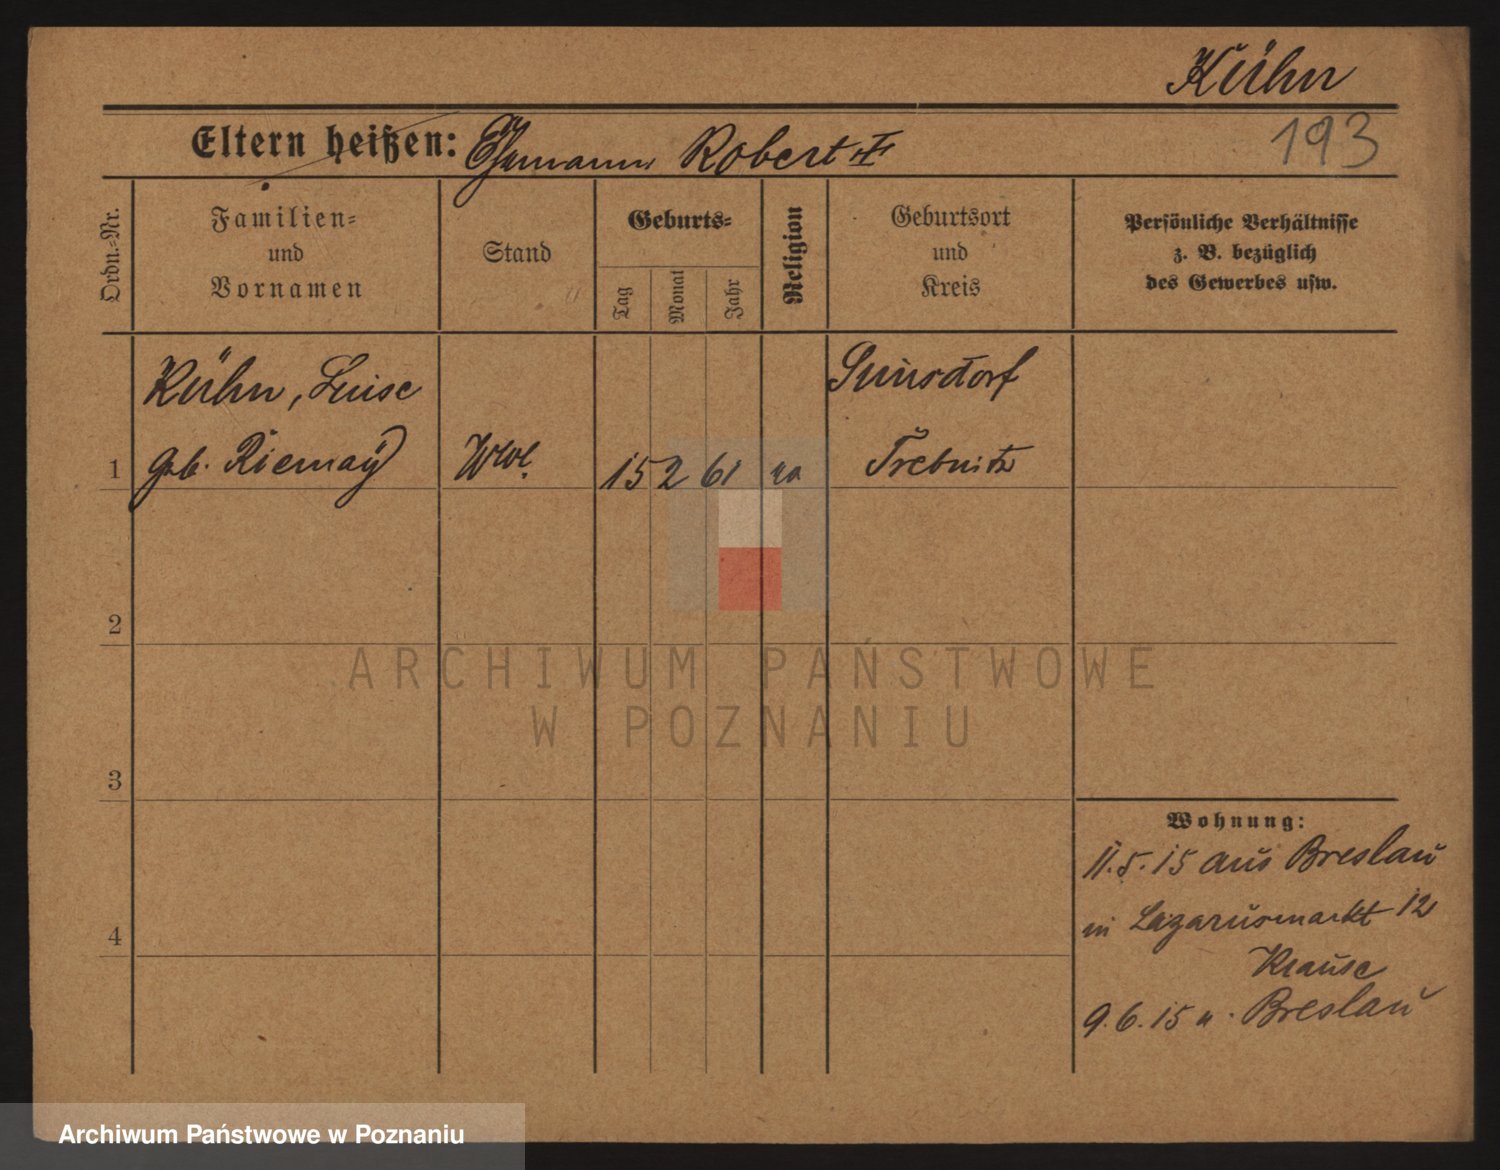 Kühn
Eltern heißen: Ehemann Robert
193
Ordn.-Nr.
Familien-
und
Vornamen
Stand
Geburts-
Tag
Monat
Jahr
Religion
Geburtsort
und
Kreis
Persönliche Verhältnisse
z. B. bezüglich
des Gewerbes usw.
Kühn, Luise
geb. Riemaÿ
1
Wwe.
15 2 61
Trebnitz
2
3
4
ARCHIWUM PAŃSTWOWE
W POZNANIU
Wohnung:
11.5.15 aus Breslau
in Lazarusmarkt 12
Krause
9.6.15 n. Breslau
Archiwum Państwowe w Poznaniu